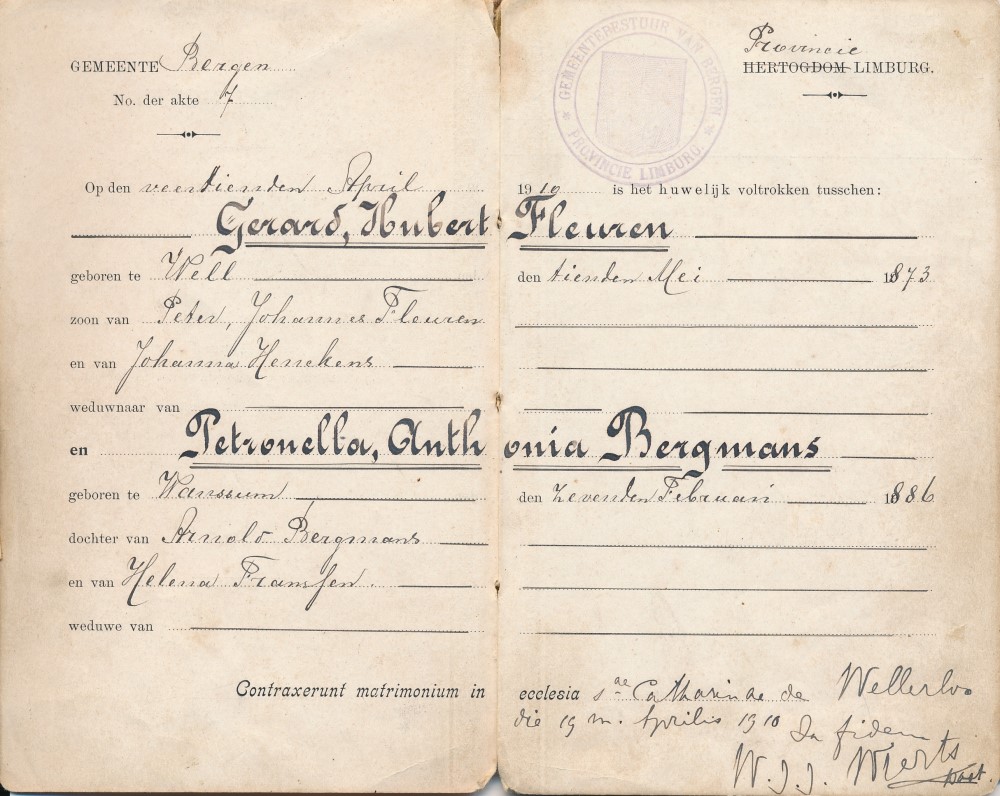 GEMEENTE Bergen
No. der akte 7
GEMEENTEBESTUUR VAN BERGEN
* PROVINCIE LIMBURG. *
Provincie
HERTOGDOM LIMBURG.
Op den veertienden April 1910 is het huwelijk voltrokken tusschen:
Gerard, Hubert Fleuren
geboren te Well den tienden Mei 1873
zoon van Peter, Johannes Fleuren
en van Johanna Henckens
weduwnaar van
en Petronella, Anthonia Bergmans
geboren te Wanssum den zevenden Februari 1886
dochter van Arnold Bergmans
en van Helena Franssen.
weduwe van
Contraxerunt matrimonium in ecclesia sae Catharinae de Wellerloo
die 19 m. Aprilis 1910 In fidem
W. J. J. Wierts
past.